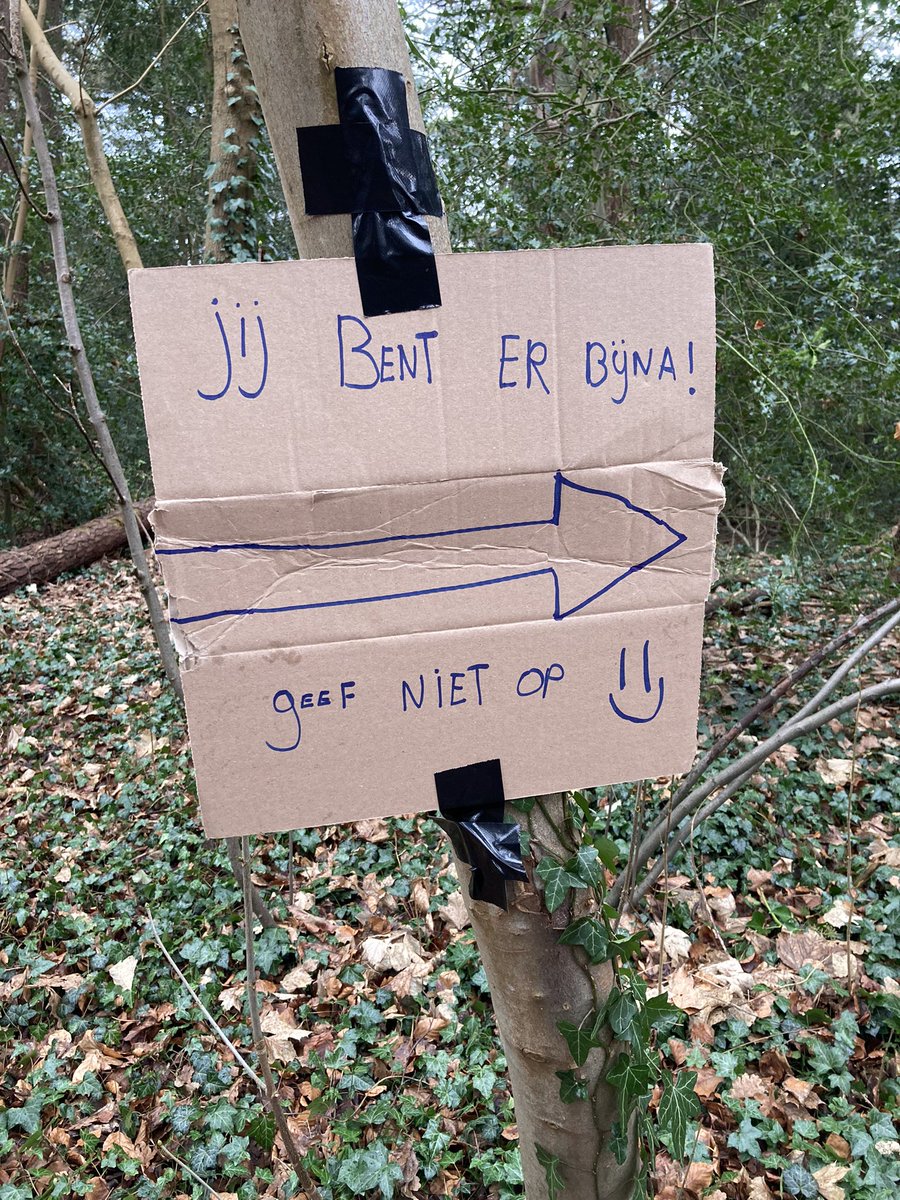 jij BENT ER BIJNA!
gEEF NiET OP